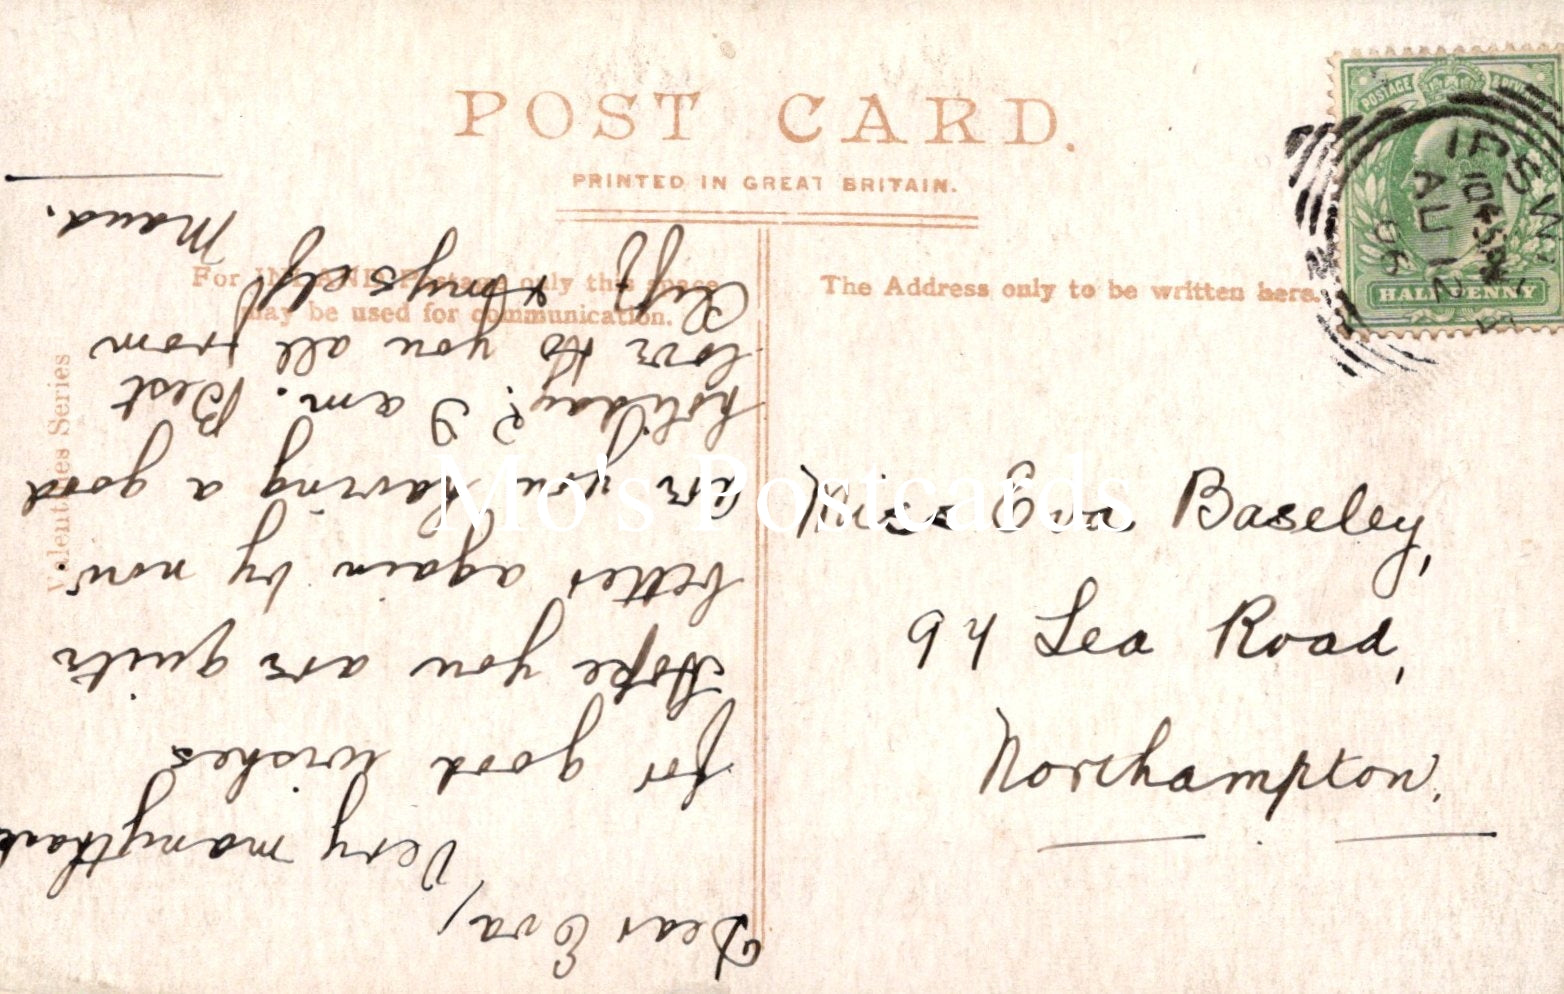 POST CARD.
PRINTED IN GREAT BRITAIN.
For INLAND Postage only this space
may be used for communication.
The Address only to be written here.
Valentines Series
POSTAGE
HALFPENNY
IPSWI
10 45
AU 12
06
Miss Eva Baseley,
94 Lea Road,
Northampton.
Dear Eva,
Very many thanks
for good wishes
Hope you are quite
better again by now.
are you having a good
holiday? I am. Best
love to you all from
& myself
Maud.
Mo's Postcards